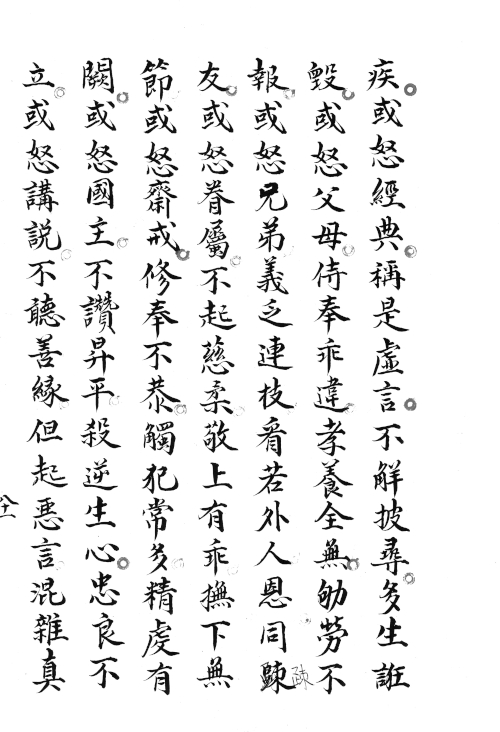 疾或怒經典稱是虛言不解披尋多生誑
毀或怒父母侍奉乖違孝養全無劬勞不
報或怒兄弟義乏連枝看若外人恩同踈
疎
友或怒眷屬不起慈柔敬上有乖撫下無
節或怒齋戒修奉不恭觸犯常多精虔有
闕或怒國主不讚昇平殺逆生心忠良不
立或怒講説不聽善緣但起惡言混雜真
八十一